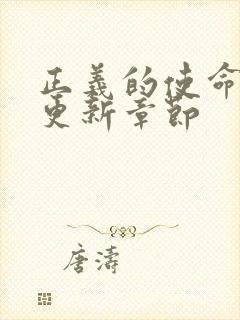 正義的使命
更新章節
唐濤